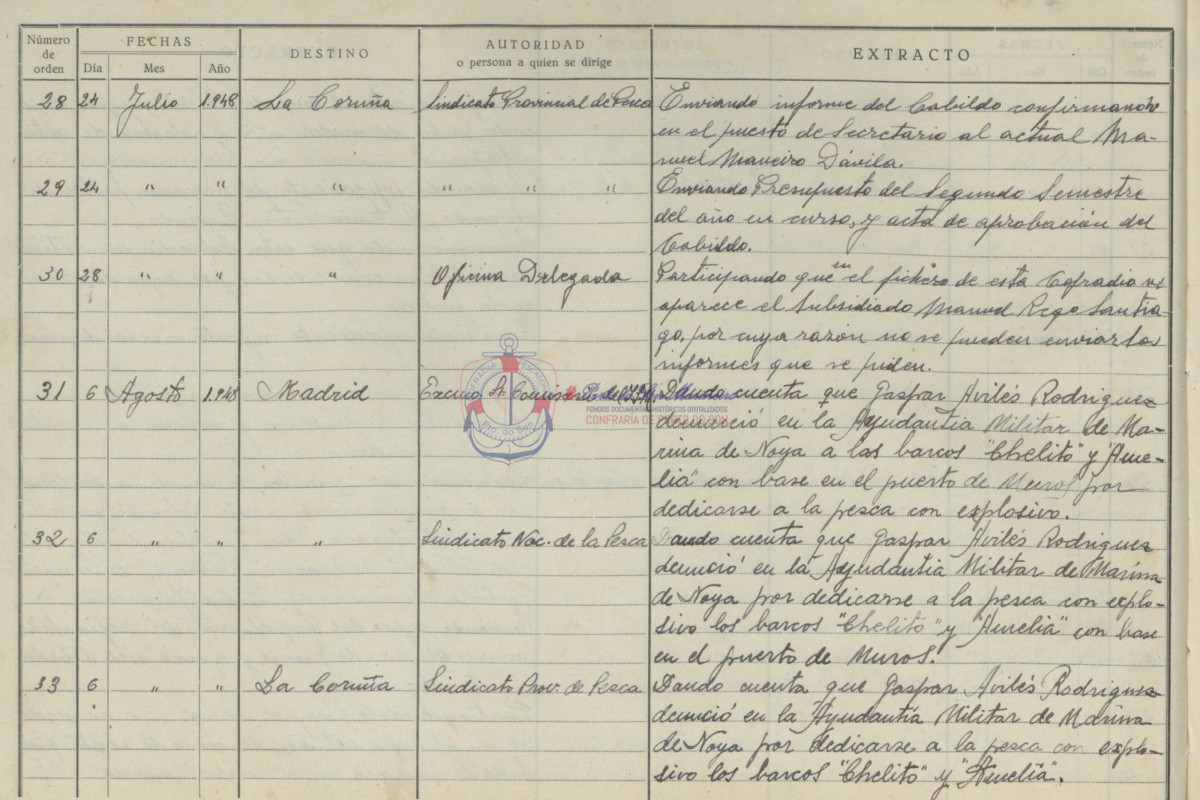 Número de orden FECHAS DESTINO AUTORIDAD o persona a quien se dirige EXTRACTO
Día Mes Año
28 24 Julio 1.948 La Coruña Sindicato Provincial de Pesca Enviando informe del Cabildo confirmando
en el puesto de Secretario al actual Ma-
nuel Maneiro Dávila.
29 24 " " " " " " Enviando Presupuesto del Segundo Semestre
del año en curso, y acta de aprobación del
Cabildo.
30 28 " " " Oficina Delegada Participando que en el fichero de esta Cofradia no
aparece el Subsidiado Manuel Rego Santia-
go, por cuya razón no se pueden enviar los
informes que se piden.
31 6 Agosto 1.948 Madrid Excmo. Sr. Comisario de Dando cuenta que Gaspar Avilés Rodriguez
denunció en la Ayudantia Militar de Ma-
rina de Noya a las barcos "Chelito" y "Ame-
lia" con base en el puerto de Muros por
dedicarse a la pesca con explosivo.
32 6 " " " Sindicato Nac. de la Pesca Dando cuenta que Gaspar Avilés Rodriguez
denunció en la Ayudantia Militar de Marina
de Noya por dedicarse a la pesca con explo-
sivo los barcos "Chelito" y "Amelia" con base
en el puerto de Muros.
33 6 " " La Coruña Sindicato Prov. de Pesca Dando cuenta que Gaspar Avilés Rodriguez
denunció en la Ayudantía Militar de Marina
de Noya por dedicarse a la pesca con explo-
sivo los barcos "Chelito" y "Amelia".
FONDOS DOCUMENTAIS HISTÓRICOS DIGITALIZADOS
CONFRARÍA DE PORTO DO SON